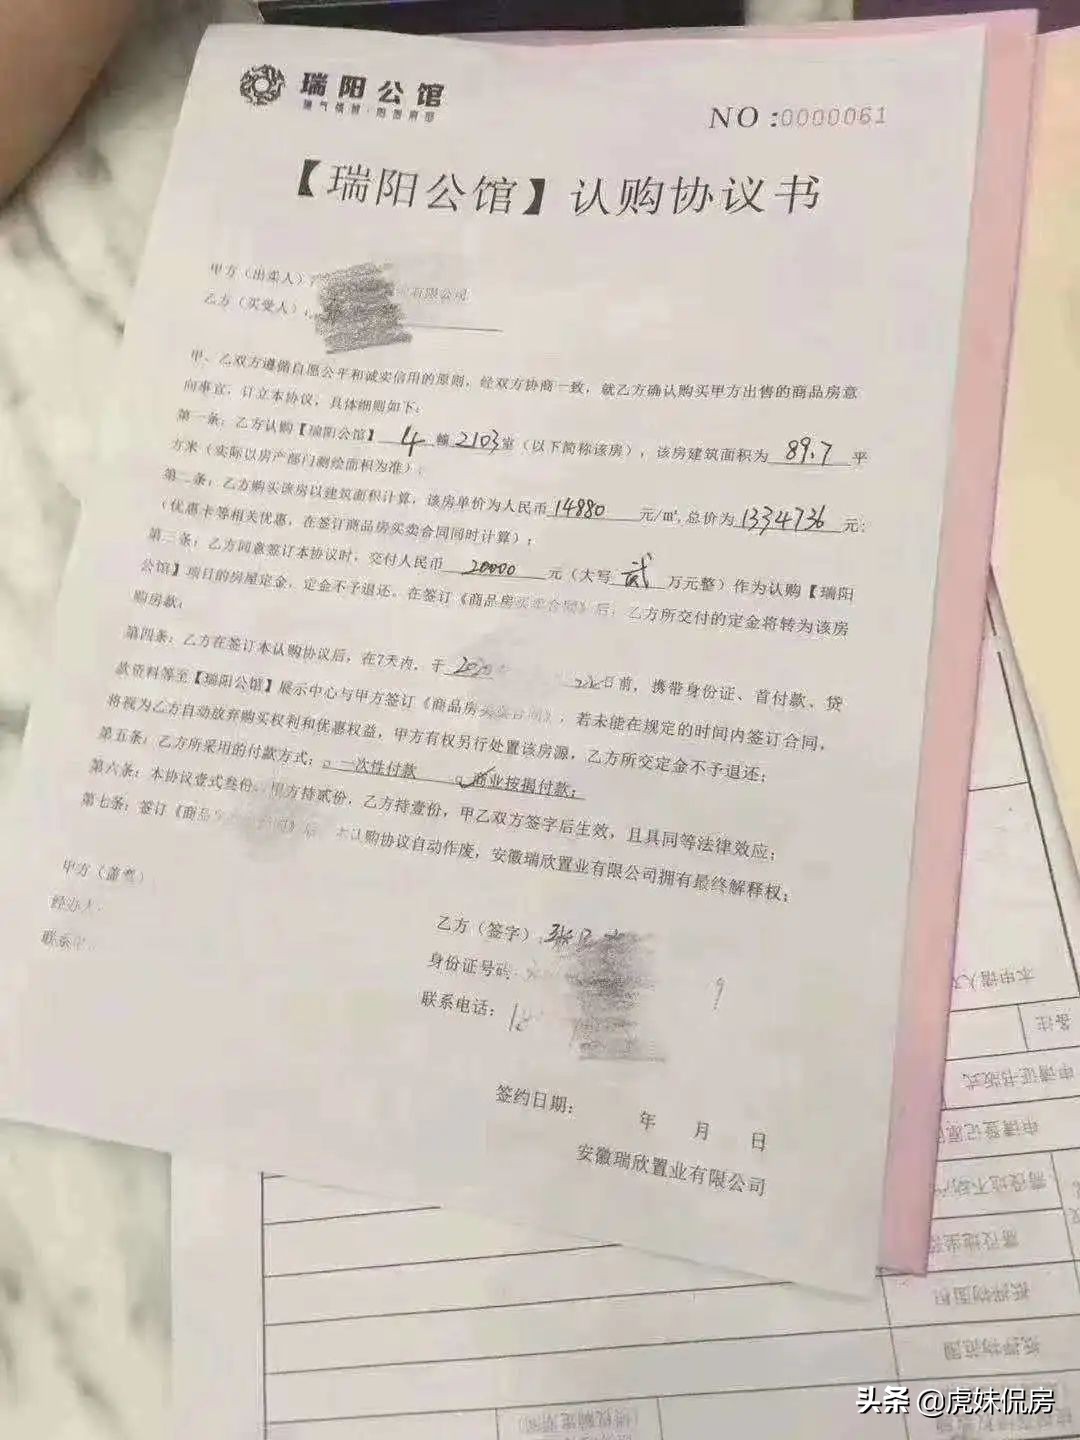 瑞阳公馆
NO:0000061
【瑞阳公馆】认购协议书
甲方（出卖人）：有限公司
乙方（买受人）：
甲、乙双方遵循自愿公平和诚实信用的原则，经双方协商一致，就乙方确认购买甲方出售的商品房意
向事宜，订立本协议，具体细则如下：
第一条：乙方认购【瑞阳公馆】4幢2103室（以下简称该房），该房建筑面积为89.7平
方米（实际以房产部门测绘面积为准）；
第二条：乙方购买该房以建筑面积计算，该房单价为人民币14880元/㎡，总价为1334736元；
（优惠卡等相关优惠，在签订商品房买卖合同同时计算）；
第三条：乙方同意签订本协议时，交付人民币20000元（大写贰万元整）作为认购【瑞阳
公馆】项目的房屋定金，定金不予退还。在签订《商品房买卖合同》后，乙方所交付的定金将转为该房
购房款；
第四条：乙方在签订本认购协议后，在7天内，于2020日前，携带身份证、首付款、贷
款资料等至【瑞阳公馆】展示中心与甲方签订《商品房买卖合同》，若未能在规定的时间内签订合同，
将视为乙方自动放弃购买权利和优惠权益，甲方有权另行处置该房源，乙方所交定金不予退还；
第五条：乙方所采用的付款方式：□一次性付款 ☑商业按揭付款；
第六条：本协议壹式叁份，甲方持贰份，乙方持壹份，甲乙双方签字后生效，且具同等法律效应；
第七条：签订《商品房买卖合同》后，本认购协议自动作废，安徽瑞欣置业有限公司拥有最终解释权；
甲方（盖章）
经办人：
联系电
乙方（签字）：张
身份证号码：
联系电话：
签约日期： 年 月 日
安徽瑞欣置业有限公司
本申请人
备注
申请证书版式
申请登记原
需役地不动产
需役地坐
抵押物面积
抵押物范围
头条 @虎妹侃房